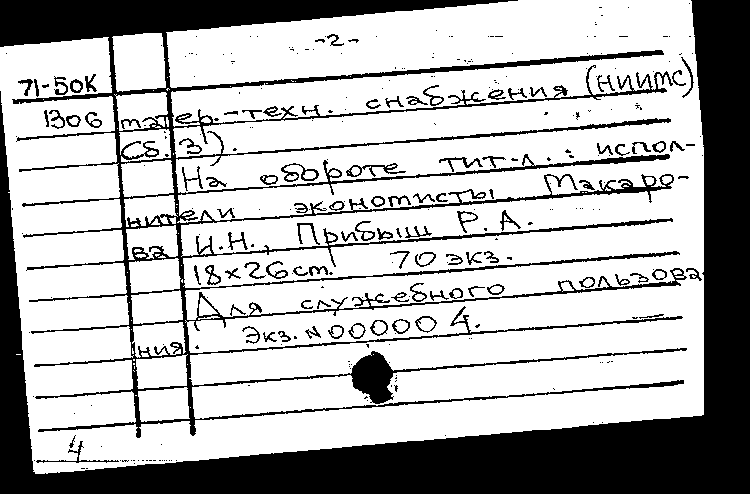 -2-
71-50К
1306 матер.-техн. снабжения (НИИМС)
Сб. 3).
На обороте тит. л.: испол-
нители экономисты Макаро-
ва И.Н., Прибыш Р.А.
18х26 cm. 70 экз.
Для служебного пользова-
ния. Экз. N 000004.
4